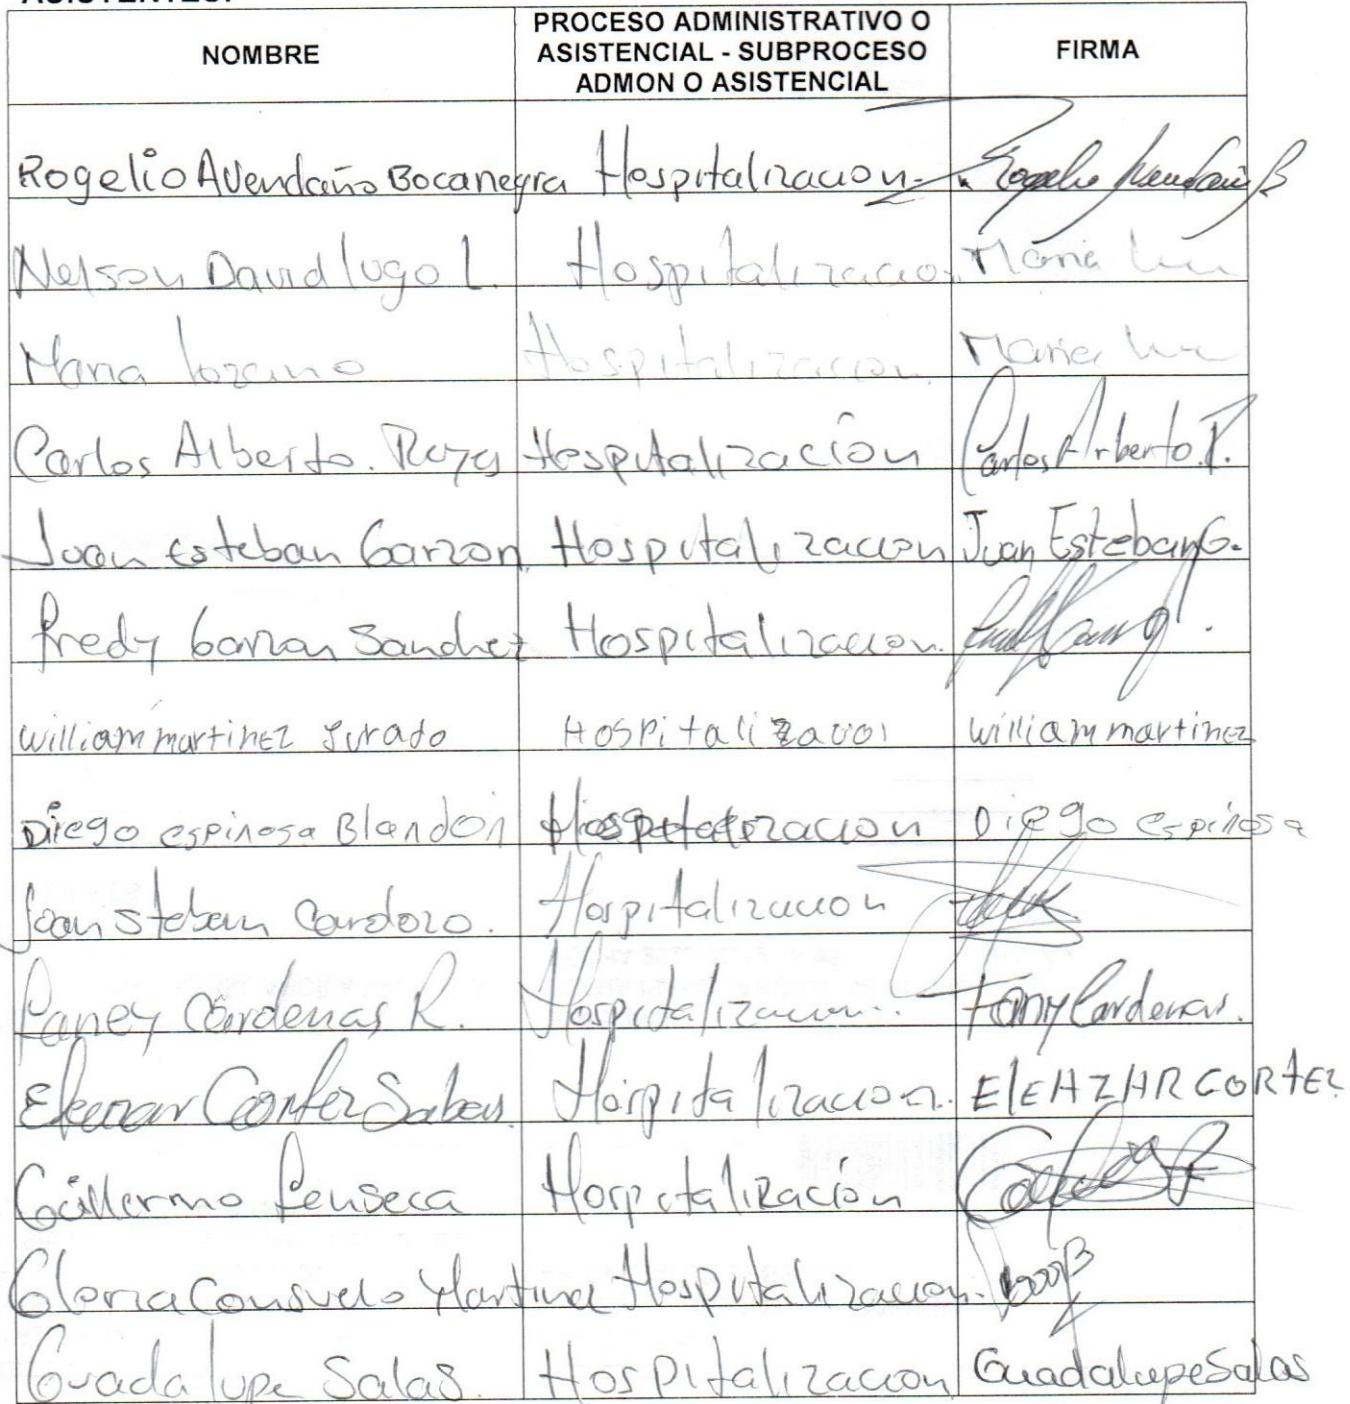 ASISTENTES:
NOMBRE
PROCESO ADMINISTRATIVO O
ASISTENCIAL - SUBPROCESO
ADMON O ASISTENCIAL
FIRMA
Rogelio Avendaño Bocanegra Hospitalizacion Rogelio Avendaño B
Nelson David lugo L. Hospitalizacion Maria
Maria lozano Hospitalizacion Maria
Carlos Alberto. Hospitalización Carlos Alberto.
Juan Esteban Garzon Hospitalizacion Juan Esteban G.
fredy Garzon Sanchez Hospitalizacion.
william martinez Jurado Hospitalizacoi william martinez
Diego espinosa Blandón Hospitalizacion Diego espinosa
Joan steban Cardozo. Hospitalizacion
Faney Cárdenas R. Hospitalizacion. Fany Cardenas.
Eleazar Cortez Hospitalizacion. ElEAZAR CORTEZ
Guillermo fonseca Hospitalización
Gloria Consuelo Martinez Hospitalizacion.
Guadalupe Salas. Hospitalizacion Guadalupe Salas